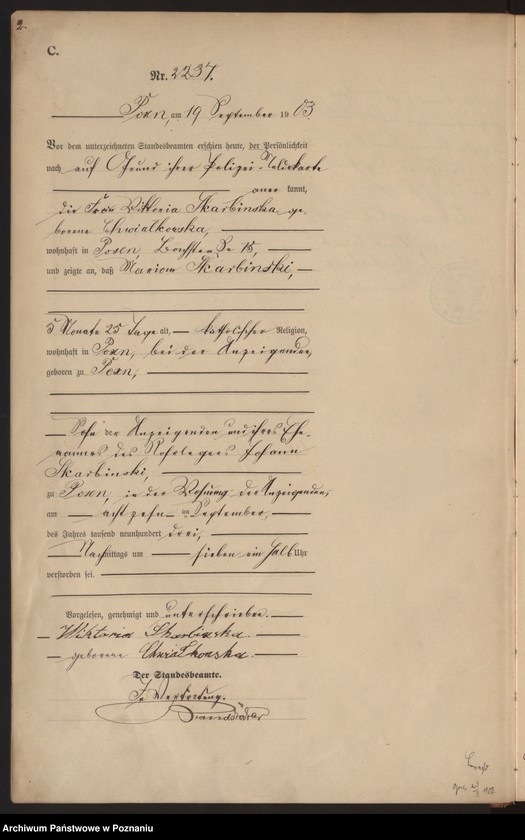 2.
C.
Nr. 2237.
Posen, am 19 September 1903.
Vor dem unterzeichneten Standesbeamten erschien heute, der Persönlichkeit
nach auf Grund ihrer Polizei-Meldekarte
aner kannt,
die Frau Viktoria Skarbinska ge-
borene Chwialkowska,
wohnhaft in Posen, Bachstraße 15,
und zeigte an, daß Marian Skarbinski,
3 Monate 25 Tage alt, katholischer Religion,
wohnhaft in Posen, bei der Anzeigenden,
geboren zu Posen,
Sohn der Anzeigenden und ihres Ehe-
mannes des Johann
Skarbinski,
zu Posen, in der Wohnung der Anzeigenden,
am achtzehn ten September,
des Jahres tausend neunhundert drei,
Nachmittags um sieben ein halb Uhr
verstorben sei.
Vorgelesen, genehmigt und unterschrieben.
Wiktoria Skarbinska
geborene Chwiałkowska.
Der Standesbeamte.
In Vertretung.
Archiwum Państwowe w Poznaniu